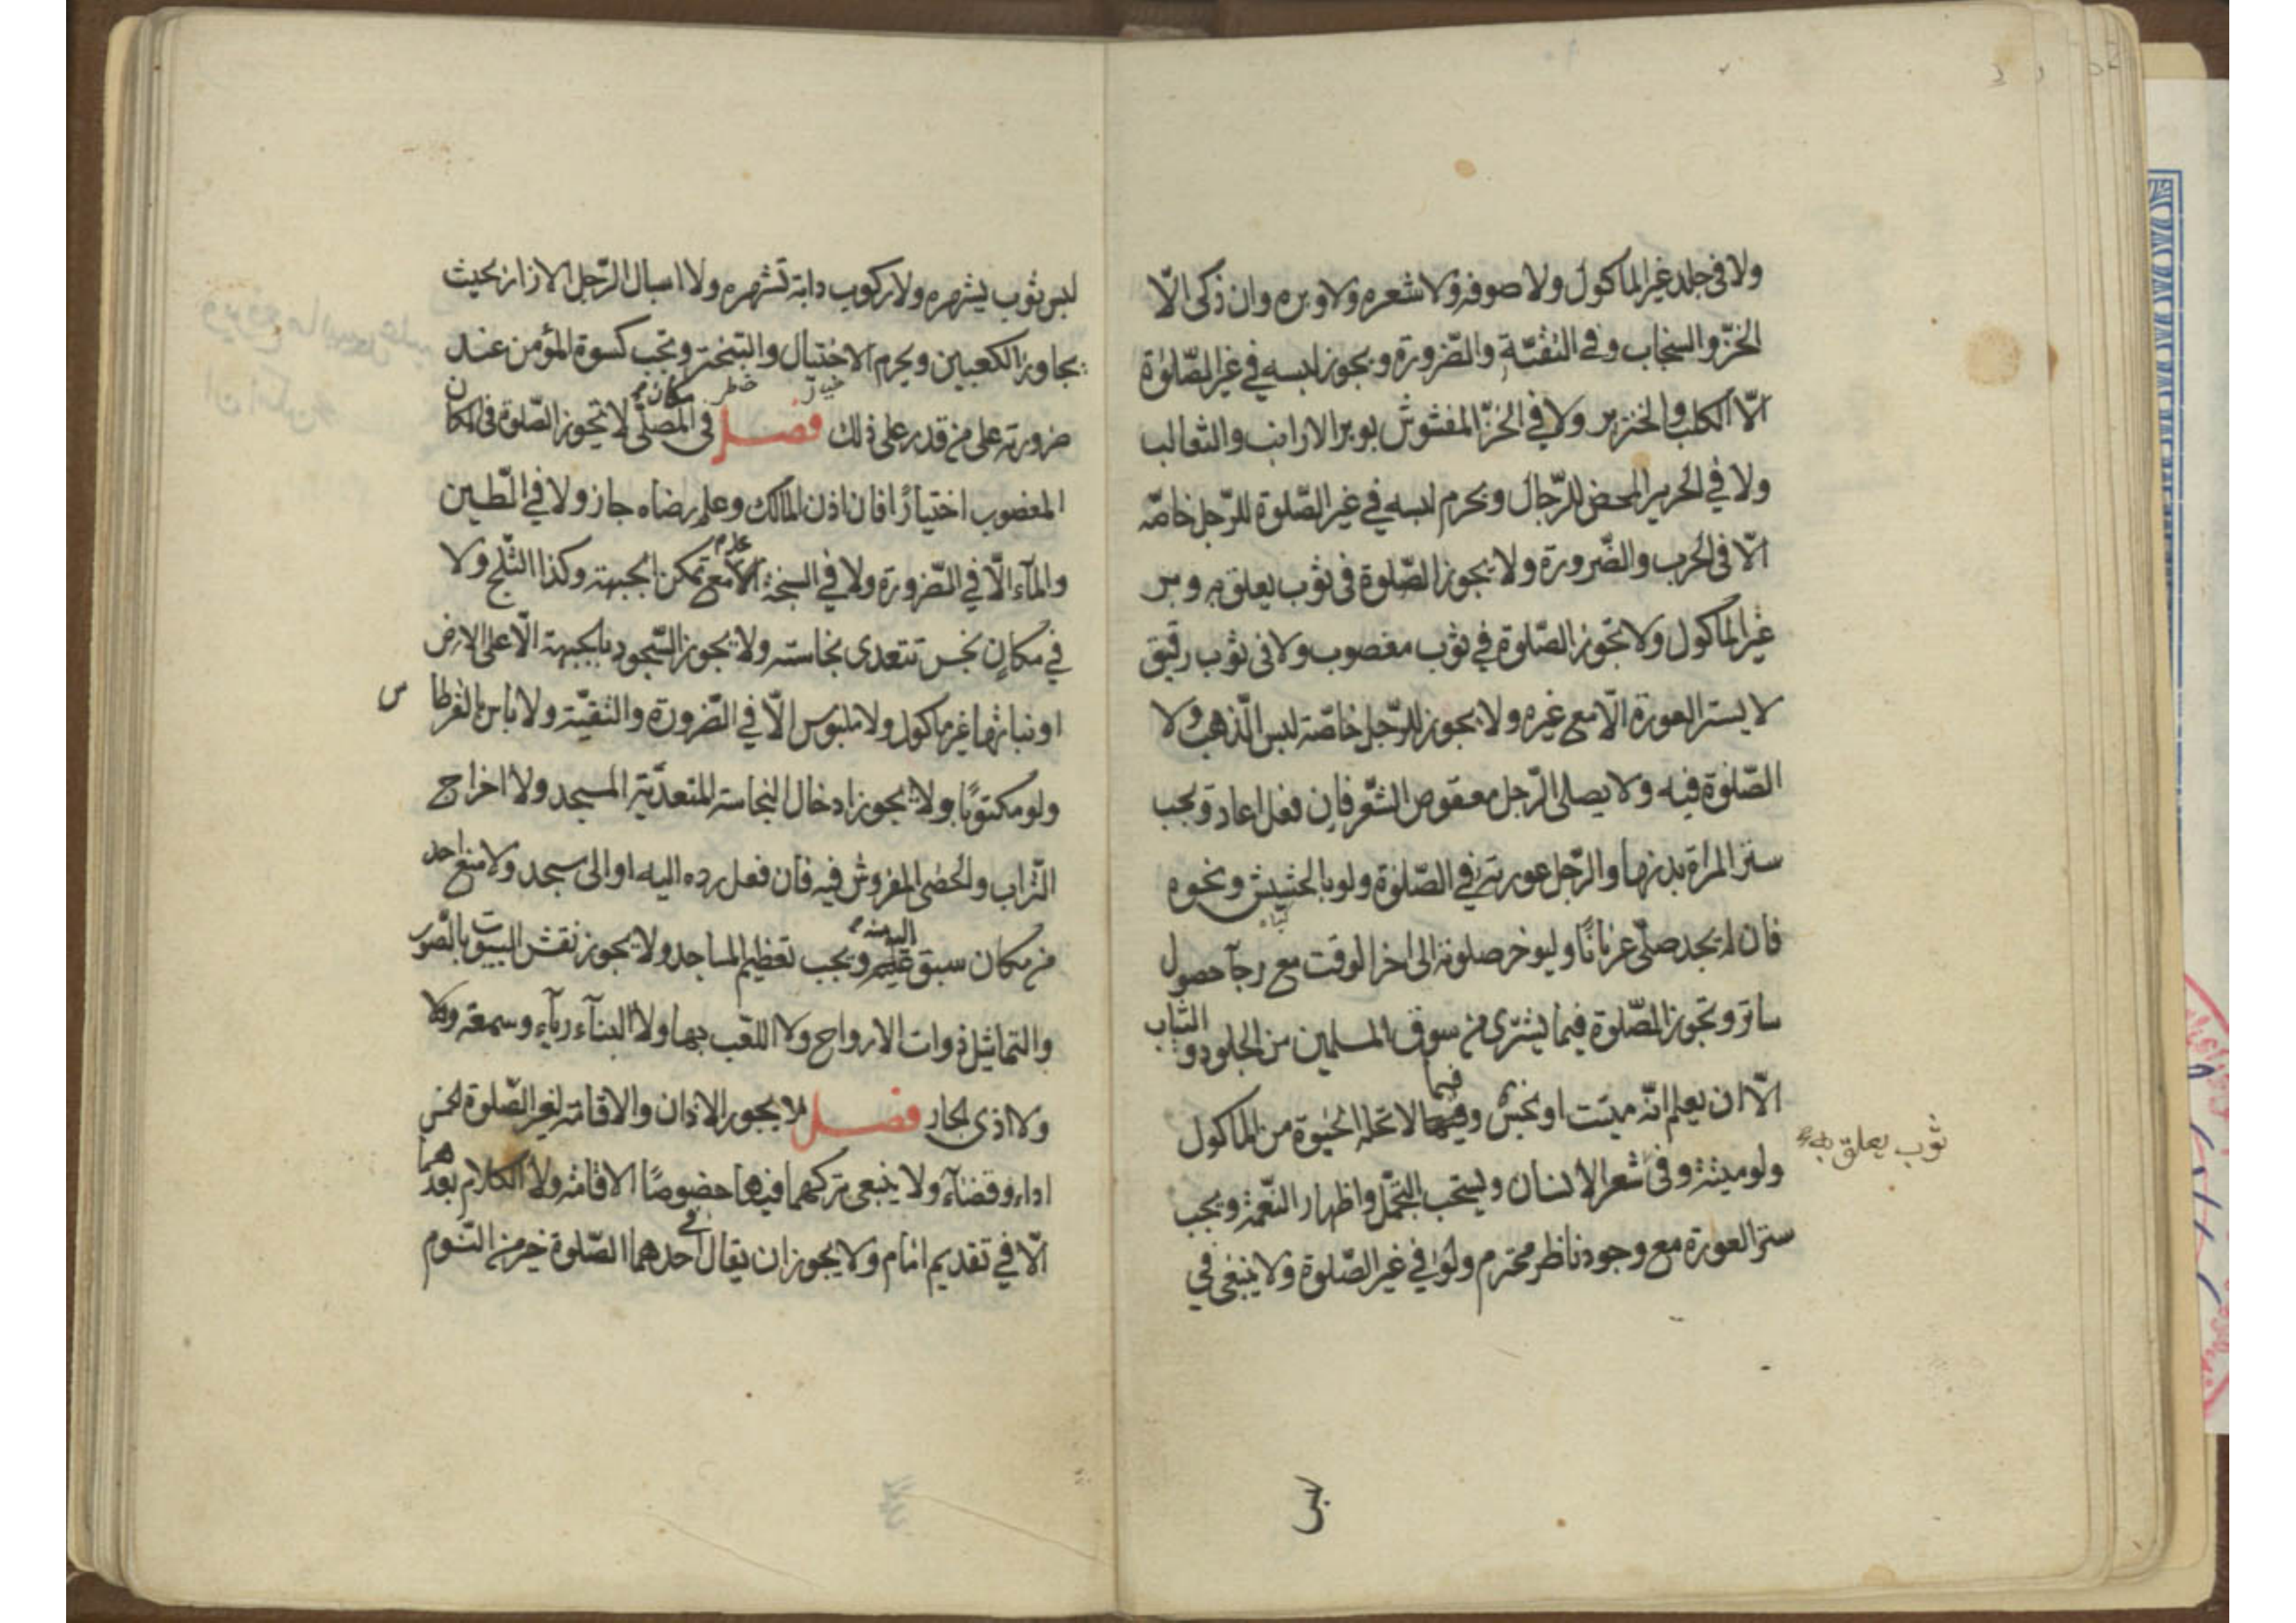 ولا فى جلد غير الماكول ولا صوفه ولا شعره ولا وبره وان ذكى الّا
الخزّ والسنجاب وفى التقيّة والضّرورة ويجوز لبسه فى غير الصّلوة
الّا الكلب والخنزير ولا فى الخزّ المغشوش بوبر الارانب والثعالب
ولا فى الحرير المحض للرّجال ويحرم لبسه فى غير الصّلوة للرّجل خاصّه
الّا فى الحرب والضّرورة ولا يجوز الصّلوة فى ثوب يعلق به وبر
غير الماكول ولا تجوز الصّلوة فى ثوب مغصوب ولا فى ثوب رقيق
لا يستر العورة الّا مع غيره ولا يجوز للرّجل خاصّة لبس الذّهب ولا
الصّلوة فيه ولا يصلى الرّجل معقوص الشّعر فان فعل اعاد ويجب
ستر المراة بدنها والرّجل عورته فى الصّلوة ولو بالحشيش ونحوه
فان لم يجد صلّى عريانًا وليوخر صلوته الى اخر الوقت مع رجآء حصول
ساتر وتجوز الصّلوة فيما يشترى من سوق المسلمين من الجلود والثياب
الّا ان يعلم انّه ميتت او نجس وفيما لا تحله الحيوة من الماكول
ثوب يعلق به
ولو ميتة وفى شعر الانسان ويستحب التجمّل واظهار النّعمة ويجب
ستر العورة مع وجود ناظر محترم ولو فى غير الصّلوة ولا ينبغى فى
لبس
لبس ثوب يشهره ولا ركوب دابة تشهره ولا اسبال الرّجل الازار بحيث
يجاوز الكعبين ويحرم الاختيال والتبختر وتجب كسوة المؤمن عند
ضرورته على من قدر على ذلك فصل فى المصلّى لا تجوز الصّلوة فى المكان
المغصوب اختيارًا فان اذن المالك وعلم رضاه جاز ولا فى الطّين
والمآء الّا فى الضّرورة ولا فى السبخة الّا مع تمكن الجبهة وكذا الثّلج ولا
فى مكان نجس تتعدى نجاسته ولا يجوز السّجود بالجبهة الّا على الارض
او نباتها غير ماكول ولا ملبوس الّا فى الضّرورة والتقيّة ولا باس بالقرطاس
ولو مكتوبًا ولا يجوز ادخال النجاسة المتعدّية المسجد ولا اخراج
التّراب والحصى المفروش فيه فان فعل رده اليه او الى مسجد ولا منع احد
من مكان سبق اليه ويجب تعظيم المساجد ولا يجوز نقش البيوت بالصّور
والتماثيل ذوات الارواح ولا اللعب بها ولا البنآء ريآء وسمعة ولا
ولا اذى الجار فصل لا يجوز الاذان والاقامة لغير الصّلوة الخمس
اداء وقضآء ولا ينبغى تركهما فيها خصوصًا الاقامة ولا الكلام بعدهما
الّا فى تقديم امام ولا يجوز ان يقال فى احدهما الصّلوة خير من النّوم